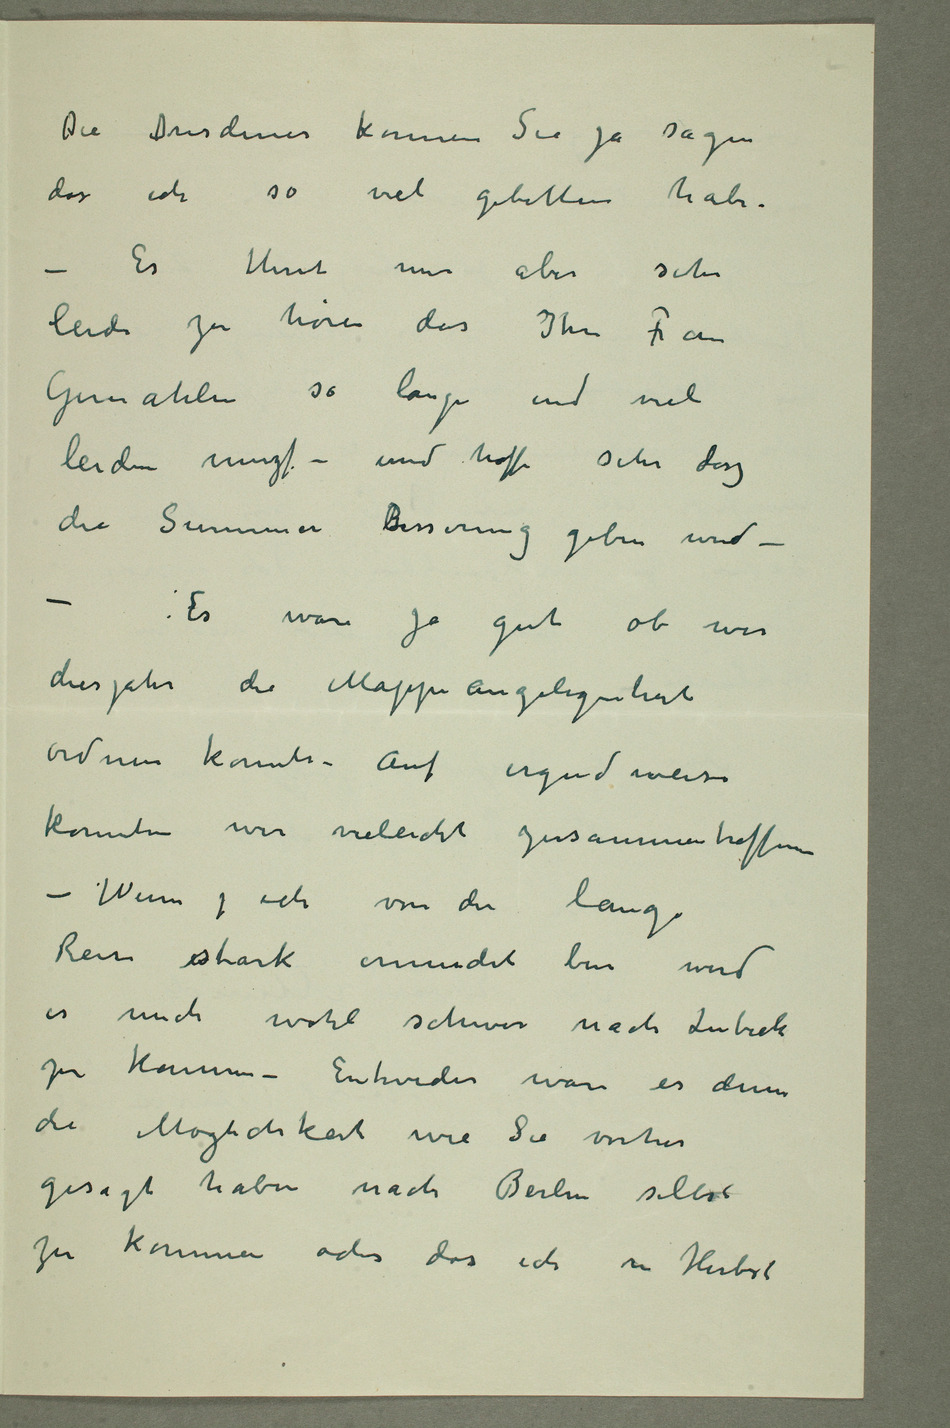 Die Dresdener können Sie ja sagen
das ich so viel gebetten habe.
– Es thut mir aber sehr
leide zu hören das Ihre Frau
Gemahlin so lange und viel
leiden muzs – und hoffe sehr dasz
die Summer Besserung geben wird –
– Es wäre ja gut ob wir
diesjahr die Mappeangelegenheit
ordnen konnte – Auf irgend weise
konnten wir vieleicht zusammentreffen
– Wenn ich von der lange
Reise stark ermüdet bin wird
es mich wohl schwer nach Lübeck
zu kommen – Entweder wäre es denn
die Möglichkeit wie Sie vorher
gesagt haben nach Berlin selbst
zu kommen oder das ich in Herbst